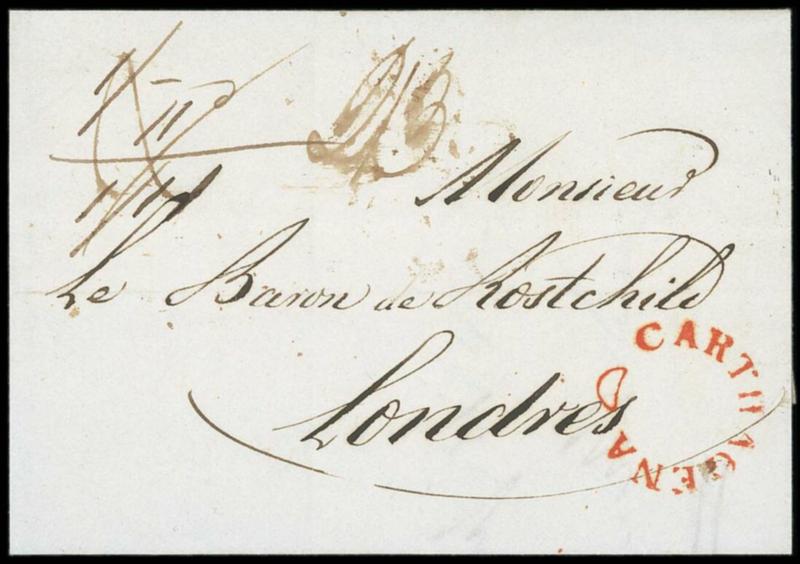 Monsieur
Le Baron de Rostchild
Londres
CARTHAGENA